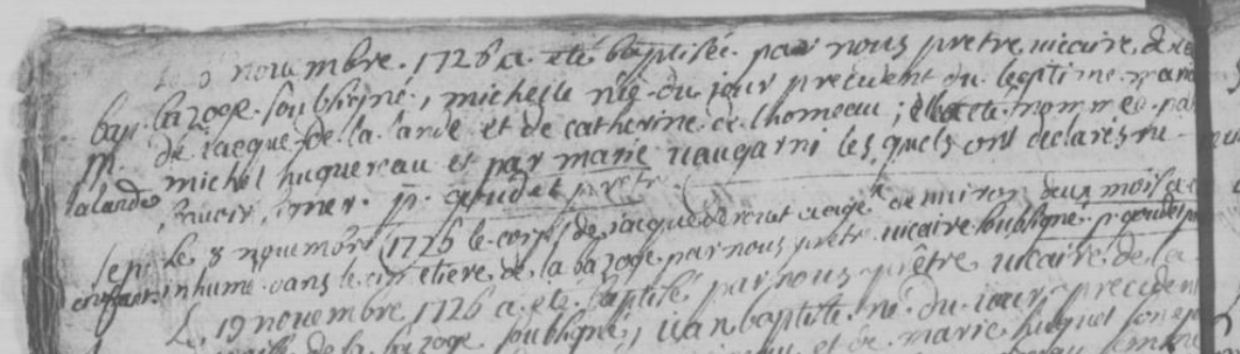 novembre 1726 a eté baptisée par nous pretre vicaire de la
bap. bazoge soubsigné, michelle née du jour precedent du legitime mariage
m. de jacque de la lande et de catherine de lhomeau; elle a eté nommée par
lalande michel huguereau et par marie vaugarni les quels ont declarés ne
savoir signer. p. goudet pretre
sep. le 8 novembre 1726 le corps de jacque aagé de environ deux mois a eté
inhumé dans le cimetiere de la bazoge par nous pretre vicaire soubsigné. p. goudet
Le 19 novembre 1726 a eté baptisé par nous prêtre vicaire de la
de la bazoge soubsigné, jean baptiste né du jour precedent
et de marie huguet son